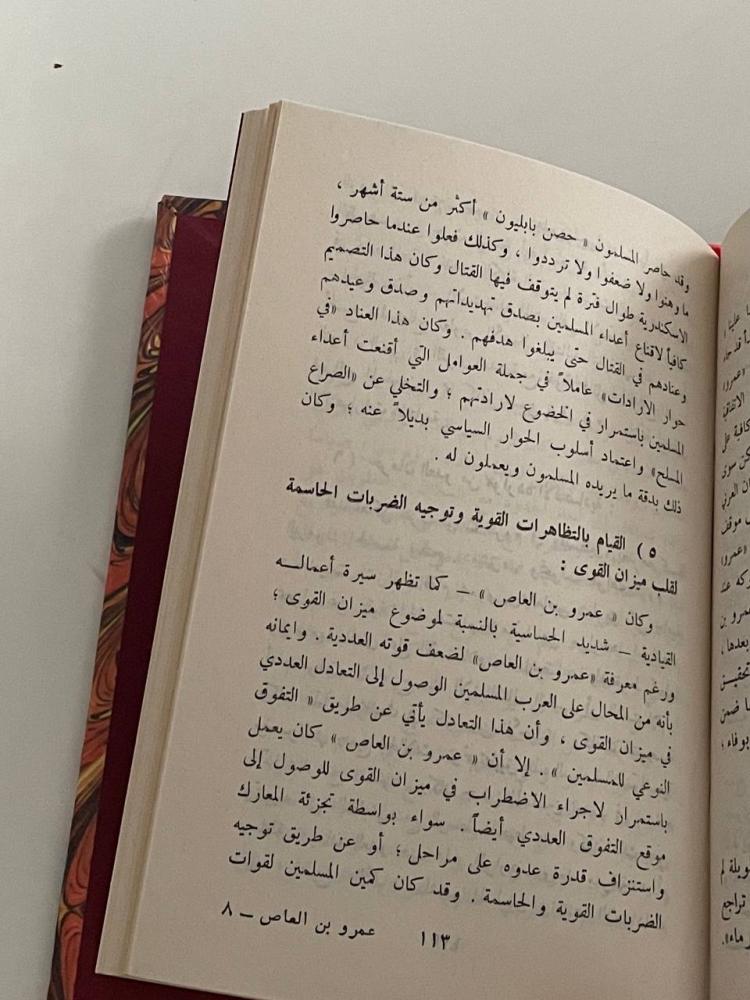 وقد حاصر المسلمون « حصن بابليون » أكثر من ستة أشهر ،
ما وهنوا ولا ضعفوا ولا ترددوا ، وكذلك فعلوا عندما حاصروا
الاسكندرية طوال فترة لم يتوقف فيها القتال وكان هذا التصميم
كافياً لاقناع أعداء المسلمين بصدق تهديداتهم وصدق وعيدهم
وعنادهم في القتال حتى يبلغوا هدفهم . وكان هذا العناد «في
حوار الارادات» عاملاً في جملة العوامل التي أقنعت أعداء
المسلمين باستمرار في الخضوع لارادتهم ؛ والتخلي عن «الصراع
المسلح» واعتماد أسلوب الحوار السياسي بديلاً عنه ؛ وكان
ذلك بدقة ما يريده المسلمون ويعملون له .
٥ ) القيام بالتظاهرات القوية وتوجيه الضربات الحاسمة
لقلب ميزان القوى :
وكان « عمرو بن العاص » – كما تظهر سيرة أعماله
القيادية – شديد الحساسية بالنسبة لموضوع ميزان القوى ؛
ورغم معرفة «عمرو بن العاص» لضعف قوته العددية . وايمانه
بأنه من المحال على العرب المسلمين الوصول إلى التعادل العددي
في ميزان القوى ، وأن هذا التعادل يأتي عن طريق « التفوق
النوعي للمسلمين » . إلا أن « عمرو بن العاص » كان يعمل
باستمرار لاجراء الاضطراب في ميزان القوى للوصول إلى
موقع التفوق العددي أيضاً . سواء بواسطة تجزئة المعارك
واستنزاف قدرة عدوه على مراحل ؛ أو عن طريق توجيه
الضربات القوية والحاسمة . وقد كان كمين المسلمين لقوات
١١٣ عمرو بن العاص – ٨